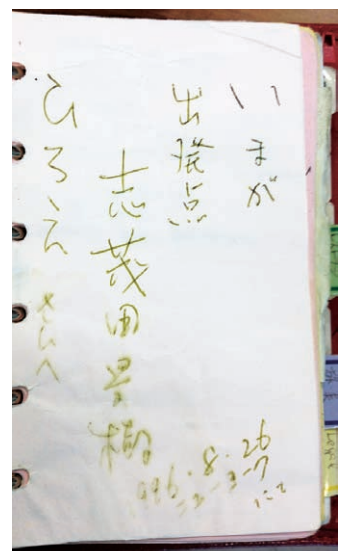 いまが
出発点
志茂田景樹
ひろえ さんへ
1996.8.26
にて